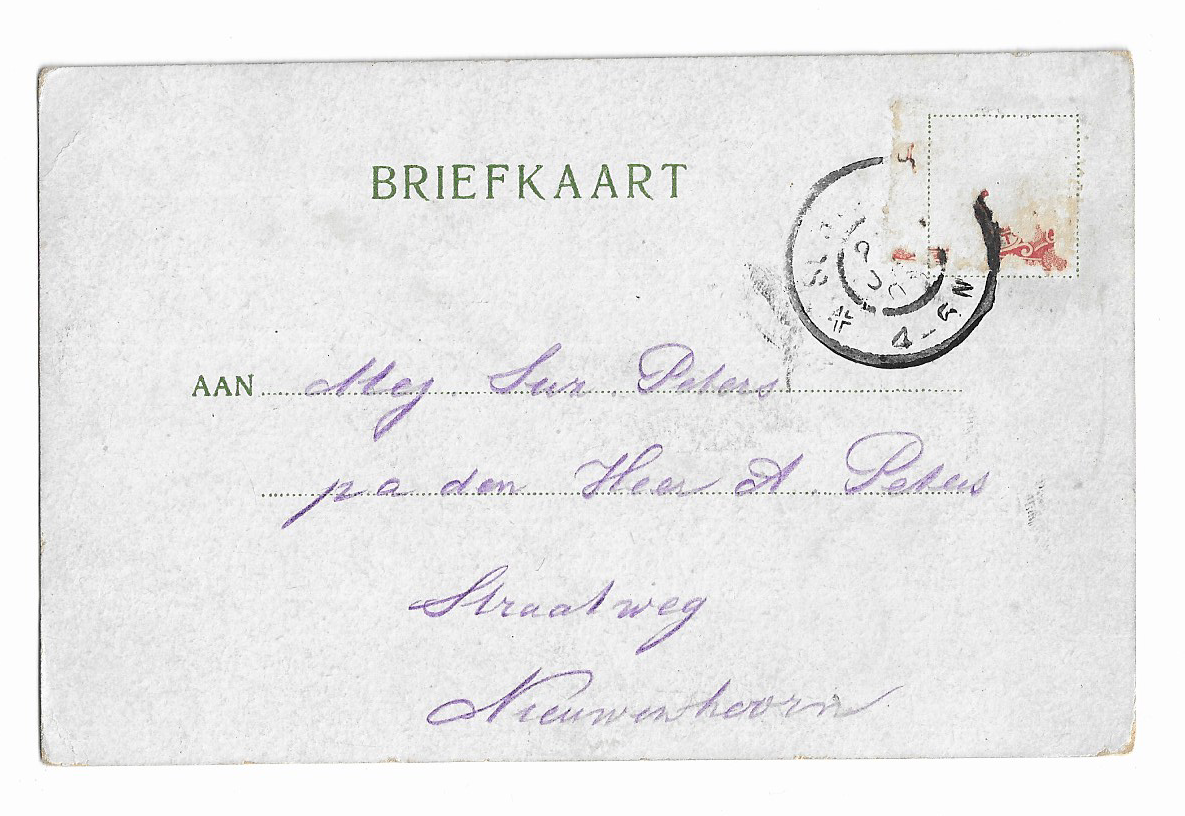 BRIEFKAART
4-5N
AAN Mej. Suz. Peters
pa den Heer A. Peters
Straatweg
Nieuwenhoorn